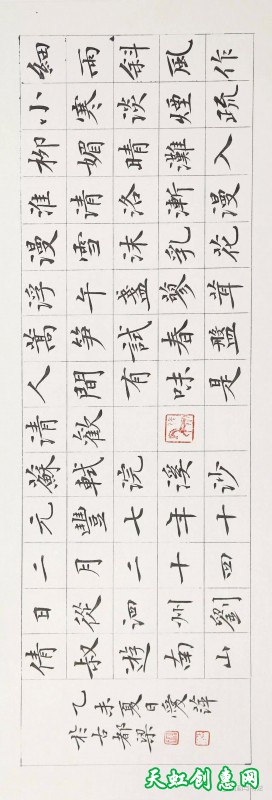 細雨斜風作
小寒淡煙疏
柳媚晴灘入
淮清洛漸漫
漫雪沫乳花
浮午盞蓼茸
蒿筍試春盤
人間有味是
清歡
蘇軾浣溪沙
元豐七年十
二月二十四
日從泗州劉
倩叔遊南山
乙未夏日愛萍
於古都梁
天虹创意网